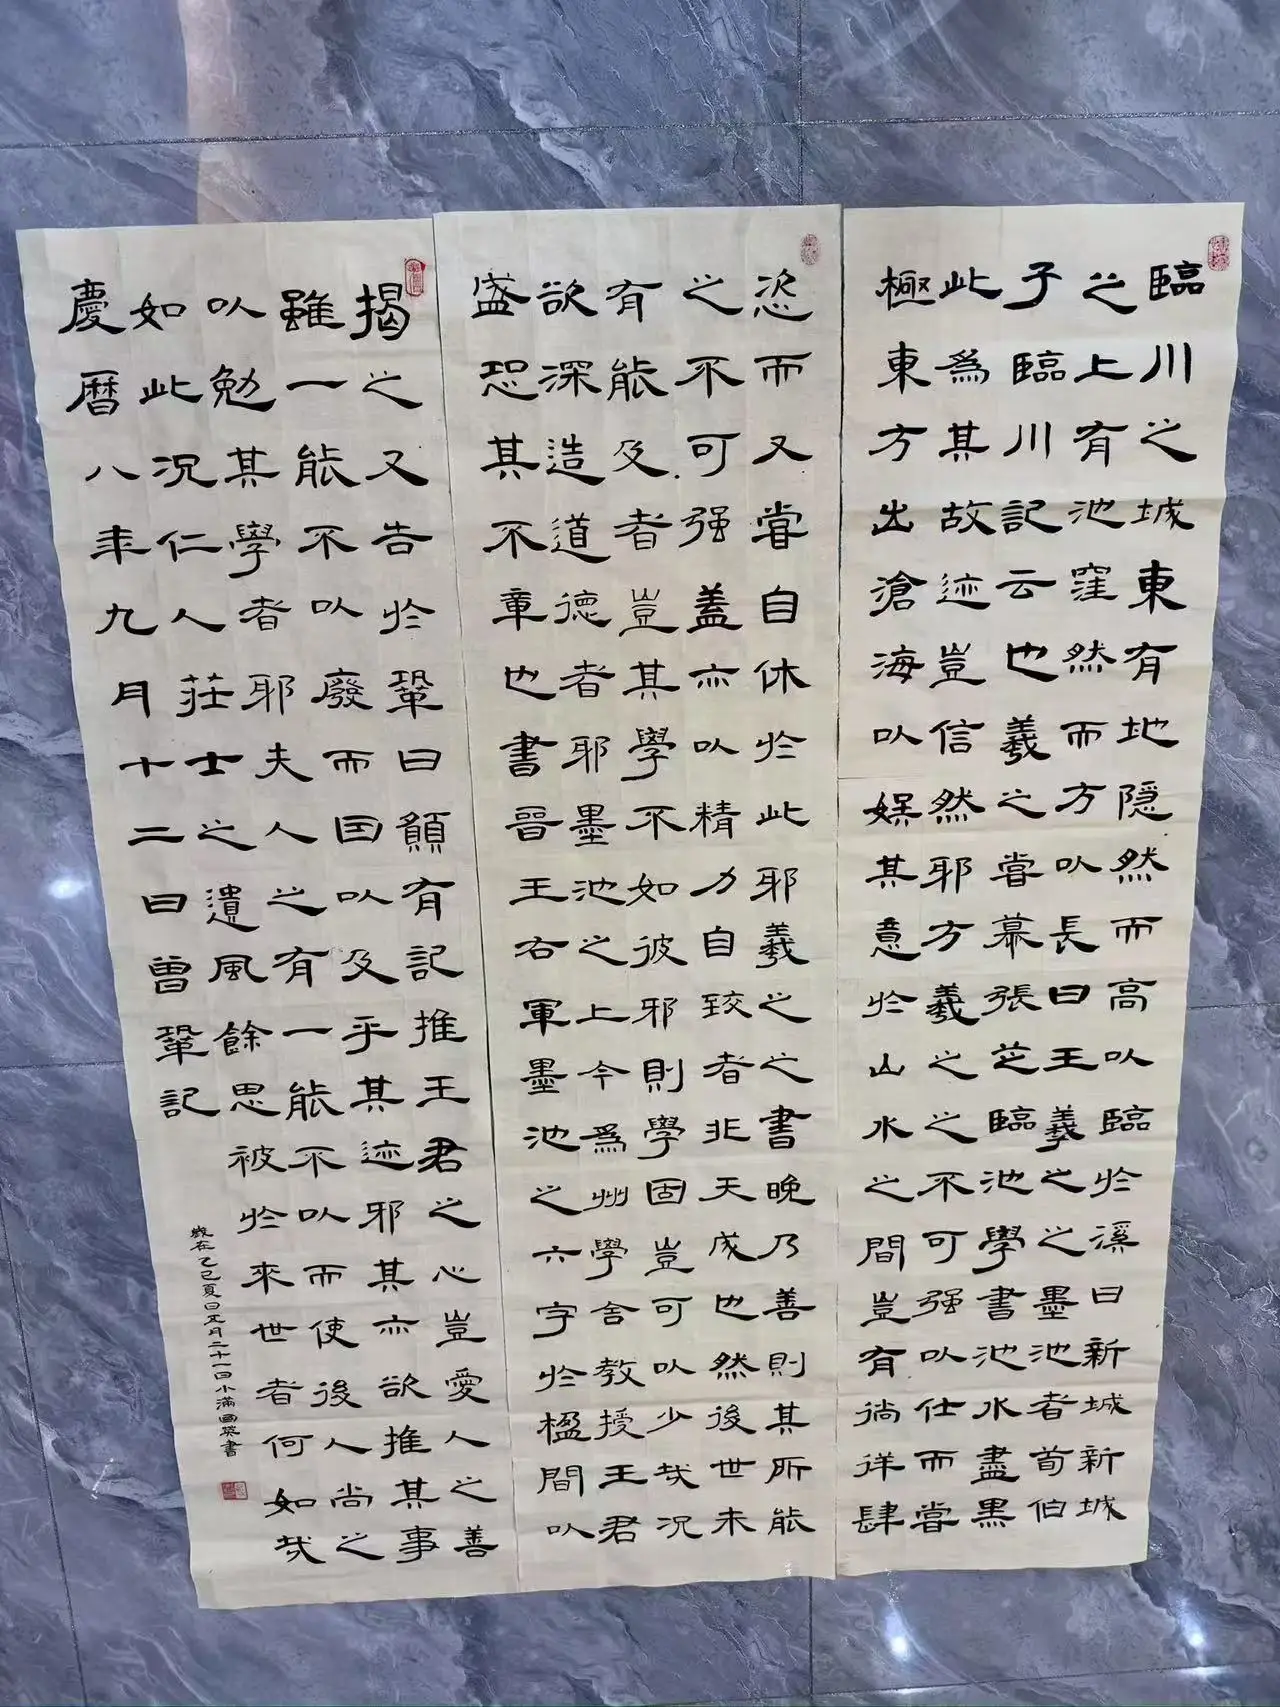 臨川之城東有地隐然而高以臨於溪曰新城新城
之上有池窪然而方以長曰王羲之之墨池者荀伯
子臨川記云也羲之嘗慕張芝臨池學書池水盡黑
此爲其故迹豈信然耶方羲之之不可强以仕而嘗
極東方出滄海以娱其意於山水之間豈有徜徉肆
恣而又嘗自休於此耶羲之之書晚乃善則其所能
之不可强蓋亦以精力自致者非天成也然後世未
有能及者豈其學不如彼邪則學固豈可以少哉况
欲深造道德者耶墨池之上今爲州學舍教授王君
盛恐其不章也書晉王右軍墨池之六字於楹間以
揭之又告於鞏曰願有記推王君之心豈愛人之善
雖一能不以廢而因以及乎其迹邪其亦欲推其事
以勉其學者耶夫人之有一能不以而使後人尚之
如此况仁人莊士之遺風餘思被於來世者何如哉
慶曆八年九月十二日曾鞏記
歲在乙巳夏日五月二十一日小滿國榮書